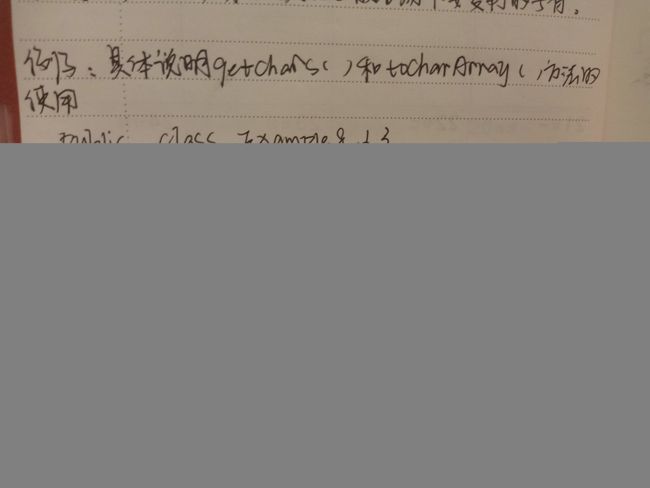 要复制的字符。
例子：具体说明getchars（）和toCharArray（）方法的
使用
public class Example8_13